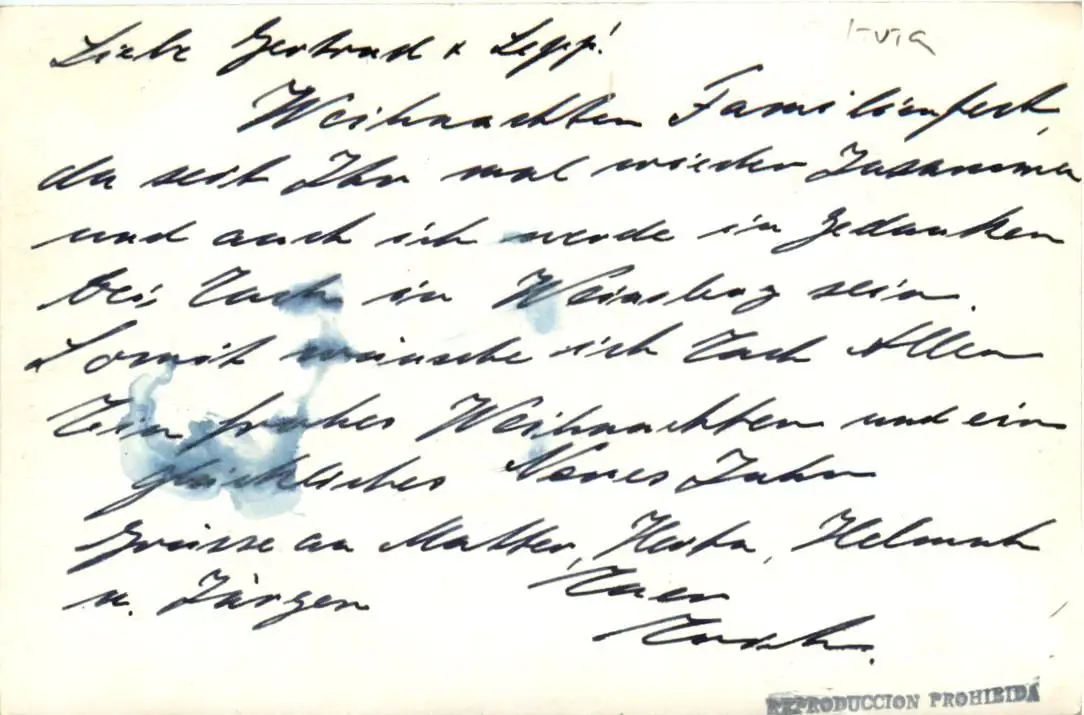 Liebe Gertrud + Sepp!
Weihnachten Familienfest,
da seit Ihr mal wieder Zusammen
und auch ich werde in Gedanken
bei Euch in Weinsberg sein.
Somit wünsche ich Euch Allen
Ein frohes Weihnachten und ein
glückliches Neues Jahr
Grüsse an Mutter, Herta, Helmut
u. Jürgen Euer
REPRODUCCION PROHIBIDA